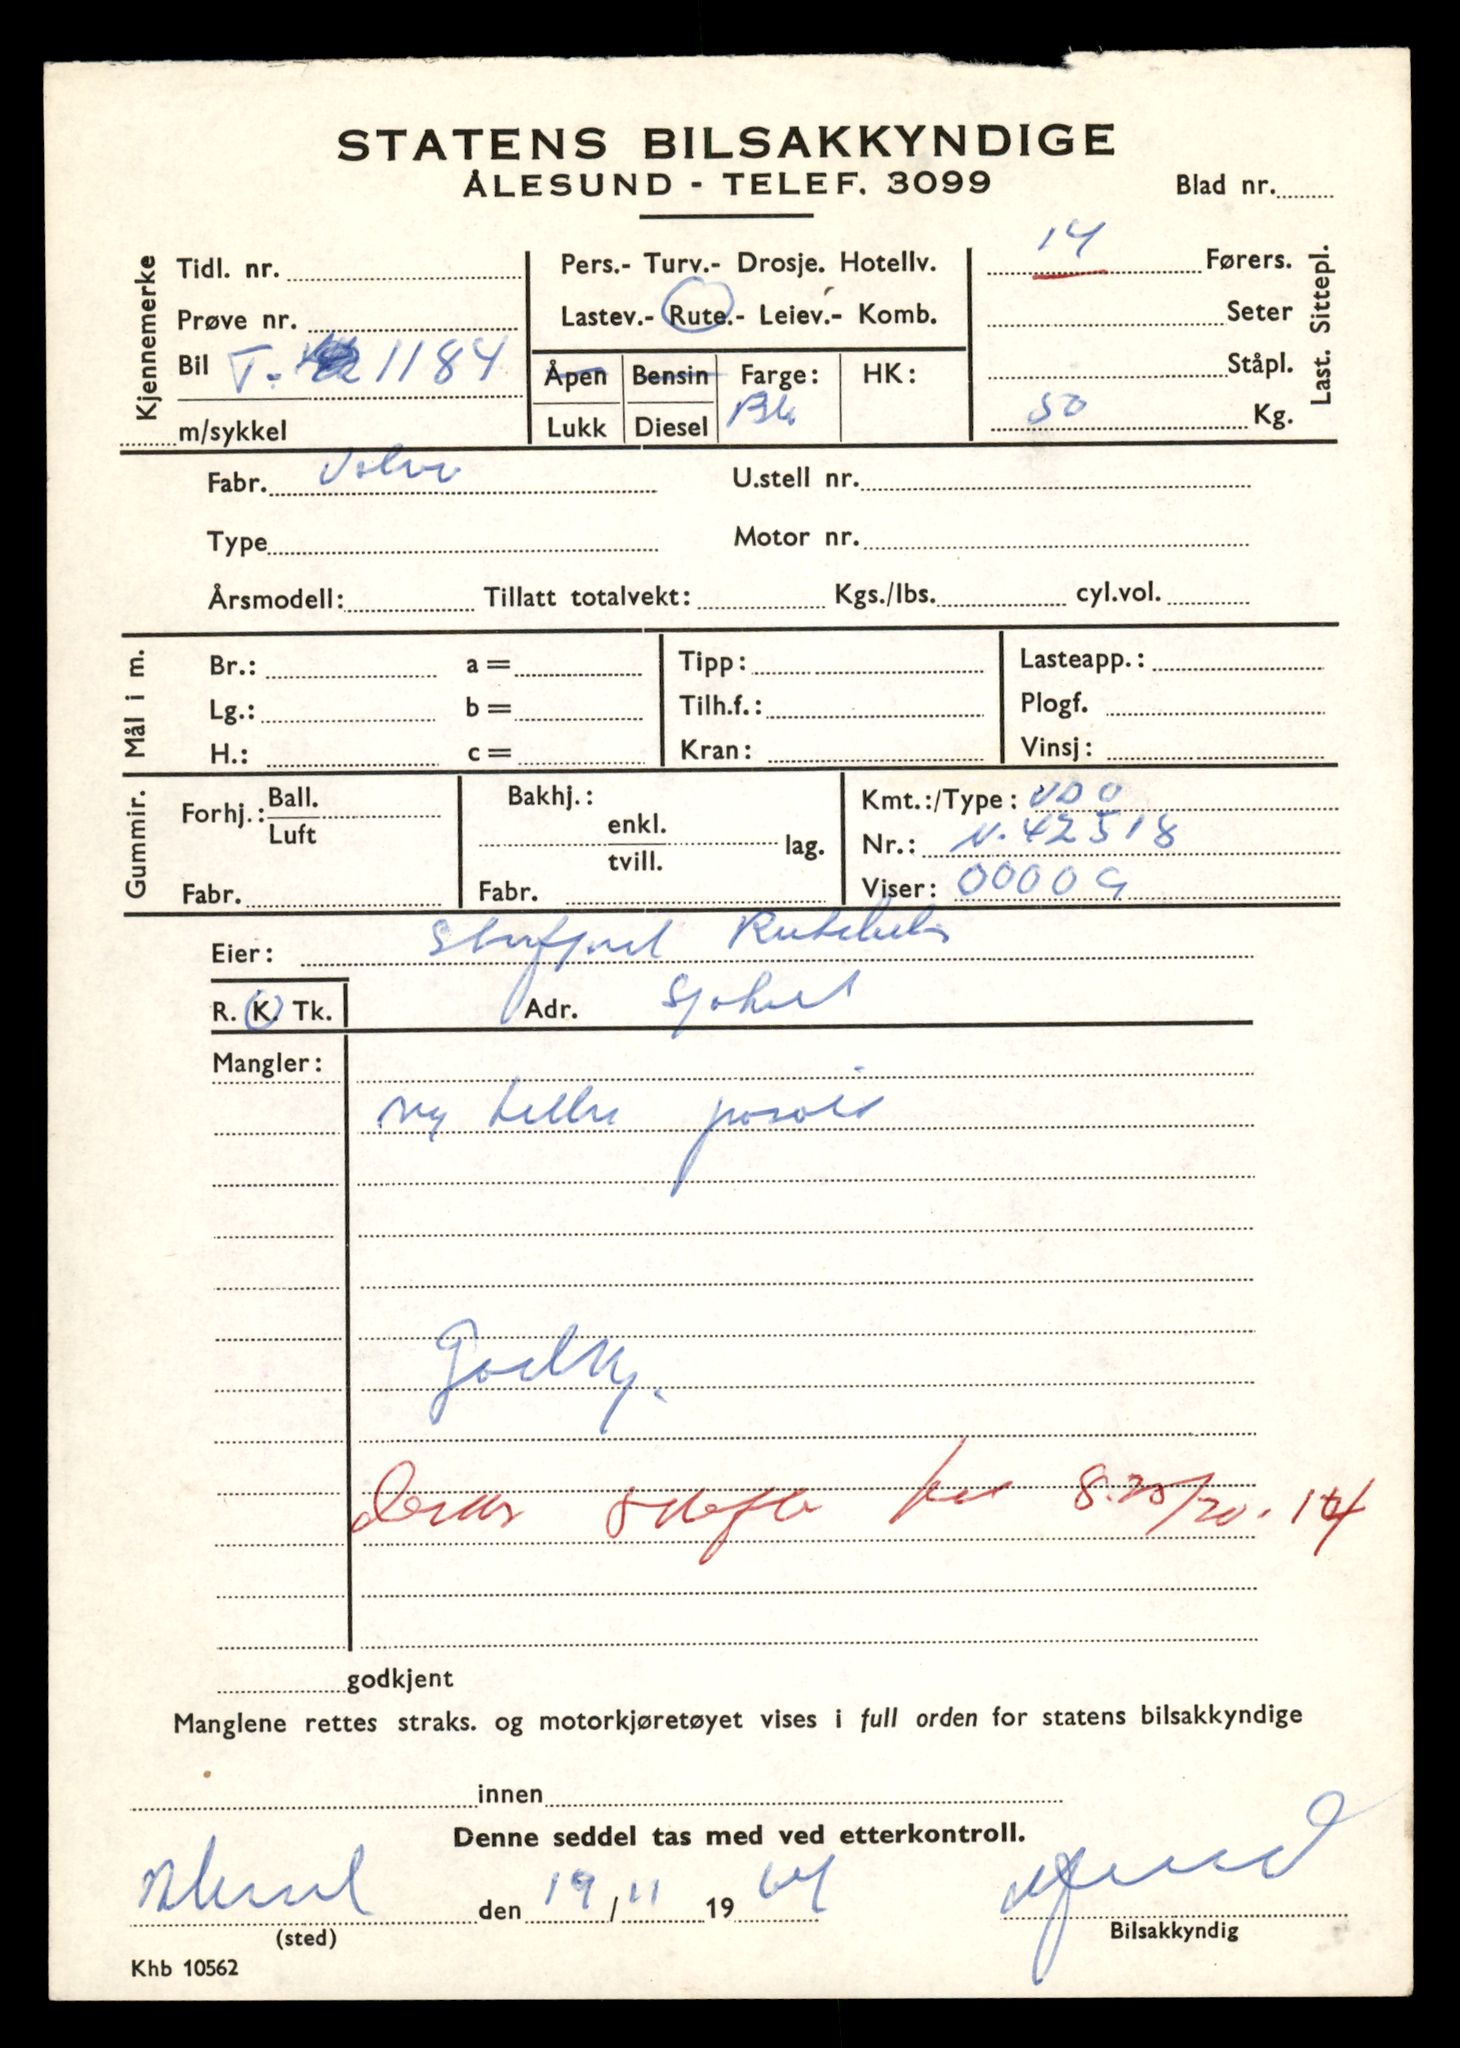 STATENS BILSAKKYNDIGE
ÅLESUND - TELEF. 3099
Blad nr.
Kjennemerke
Tidl. nr.
Prøve nr.
Bil T- 1184
m/sykkel
Pers.- Turv.- Drosje. Hotellv.
Lastev.- Rute.- Leiev.- Komb.
Åpen Bensin Farge: HK:
Lukk Diesel Blå
Last. Sittepl.
14 Førers.
Seter
Ståpl.
50 Kg.
Fabr. Volvo U.stell nr.
Type Motor nr.
Årsmodell: Tillatt totalvekt: Kgs./lbs. cyl.vol.
Mål i m.
Br.: a = Tipp: Lasteapp.:
Lg.: b = Tilh.f.: Plogf.
H.: c = Kran: Vinsj:
Gummir.
Forhj.: Ball. Luft
Fabr.
Bakhj.:
enkl. tvill. lag.
Fabr.
Kmt.:/Type: VDO
Nr.: N. 42518
Viser: 00009
Eier:
R. K. Tk. Adr. Sjøholt
Mangler:
ny teller påsatt
Godkj.
8.25/20. 14
godkjent
Manglene rettes straks. og motorkjøretøyet vises i full orden for statens bilsakkyndige
innen
Denne seddel tas med ved etterkontroll.
Ålesund den 19/11 1964
(sted) Bilsakkyndig
Khb 10562